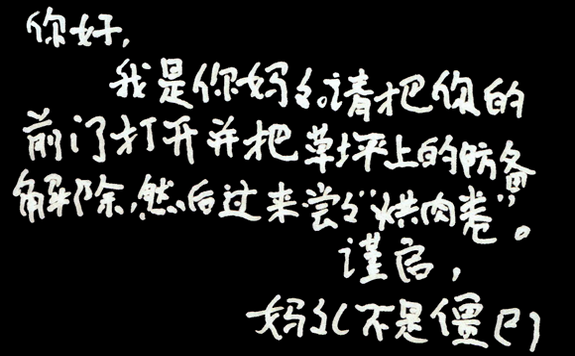 你好，
我是你妈々。请把你的
前门打开并把草坪上的防备
解除，然后过来尝々“烘肉卷”。
谨启，
妈々（不是僵尸）